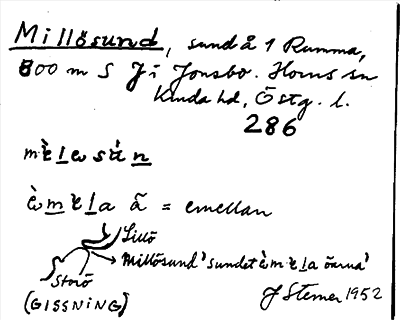 Millösund, sund å 1 Ramma,
800 m S Ji Jonsbo. Horns sn
Kinda hd, Östg. l.
286
mè̱lewsún
èmèla ā = emellan
Lillö
Millösund 'sundet èmèla öarna'
Storö
(GISSNING)
J Sterner 1952